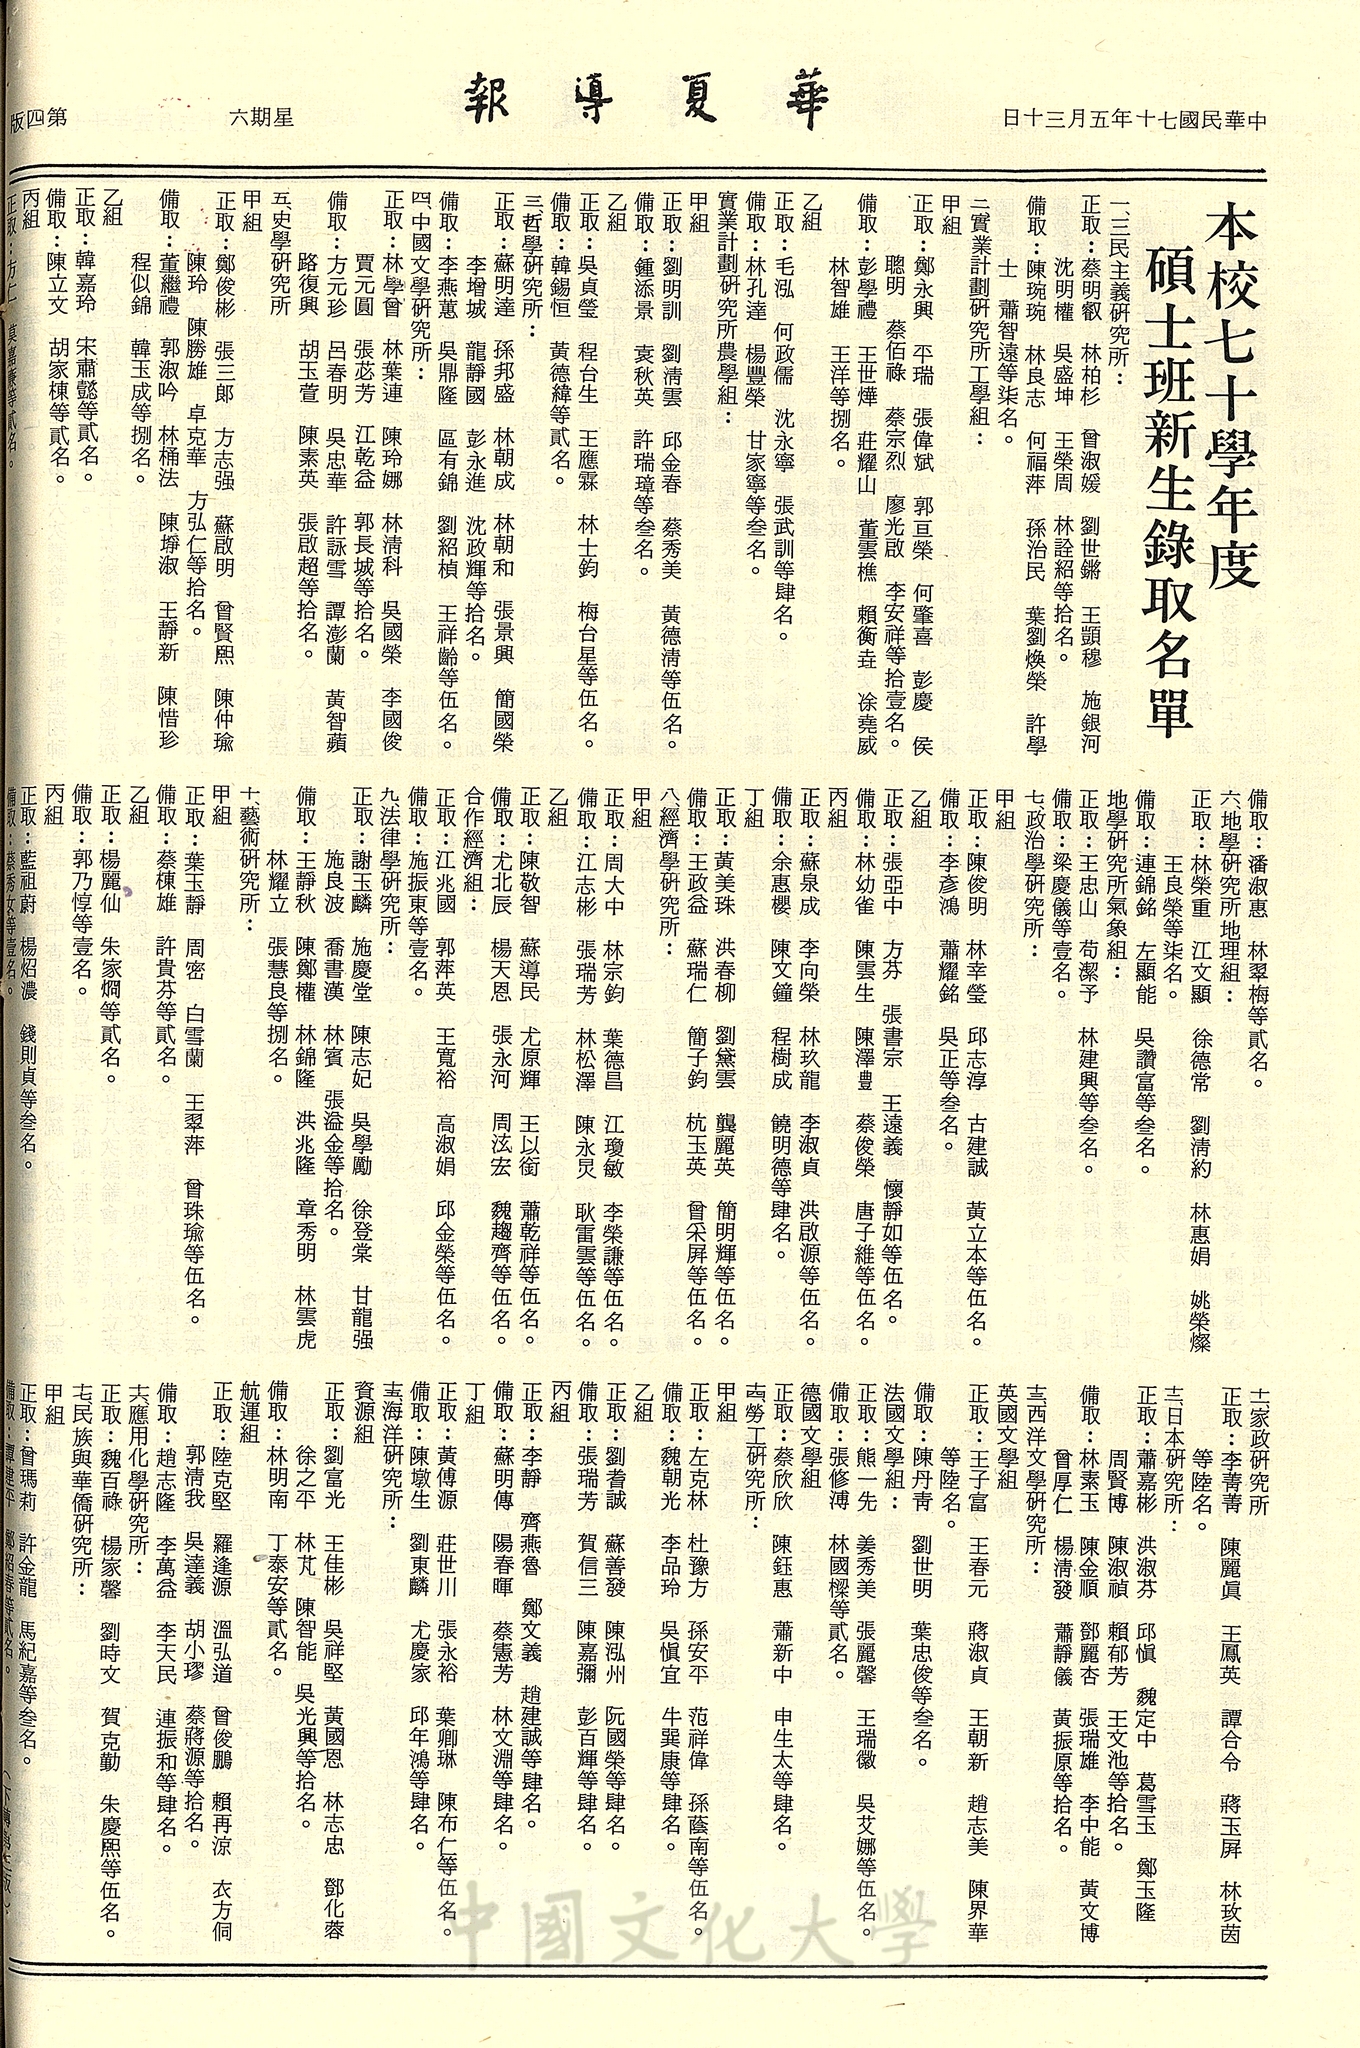 中華民國七十年五月三十日
華夏導報
星期六
第四版
本校七十學年度
碩士班新生錄取名單
一、三民主義研究所：
正取：蔡明叡　林柏杉　曾淑媛　劉世鏘　王顗穆　施銀河
沈明權　吳盛坤　王榮周　林詮紹等拾名。
備取：陳琬琬　林良志　何福萍　孫治民　葉劉煥榮　許學
士　蕭智遠等柒名。
二、實業計劃研究所工學組：
甲組
正取：鄭永興　平瑞　張偉斌　郭亘榮　何肇喜　彭慶　侯
聰明　蔡佰祿　蔡宗烈　廖光啟　李安祥等拾壹名。
備取：彭學禮　王世燁　莊耀山　董雲樵　賴衡垚　涂堯威
林智雄　王洋等捌名。
乙組
正取：毛泓　何政儒　沈永寧　張武訓等肆名。
備取：林孔達　楊豐榮　甘家寧等叁名。
實業計劃研究所農學組：
甲組
正取：劉明訓　劉清雲　邱金春　蔡秀美　黃德清等伍名。
備取：鍾添景　袁秋英　許瑞璋等叁名。
乙組
正取：吳貞瑩　程台生　王應霖　林士鈞　梅台星等伍名。
備取：韓錫恒　黃德緯等貳名。
三、哲學研究所：
正取：蘇明達　孫邦盛　林朝成　林朝和　張景興　簡國榮
李增城　龍靜國　彭永進　沈政輝等拾名。
備取：李燕蕙　吳鼎隆　區有錦　劉紹楨　王祥齡等伍名。
四、中國文學研究所：
正取：林學曾　林葉連　陳玲娜　林清科　吳國榮　李國俊
賈元圓　張苾芳　江乾益　郭長城等拾名。
備取：方元珍　呂春明　吳忠華　許詠雪　譚澎蘭　黃智蘋
路復興　胡玉萱　陳素英　張啟超等拾名。
五、史學研究所
甲組
正取：鄭俊彬　張三郎　方志强　蘇啟明　曾賢熙　陳仲瑜
陳玲　陳勝雄　卓克華　方弘仁等拾名。
備取：董繼禮　郭淑吟　林桶法　陳埩淑　王靜新　陳惜珍
程似錦　韓玉成等捌名。
乙組
正取：韓嘉玲　宋肅懿等貳名。
備取：陳立文　胡家棟等貳名。
丙組
正取：方仁　莫嘉廉等貳名。
備取：潘淑惠　林翠梅等貳名。
六、地學研究所地理組：
正取：林榮重　江文顯　徐德常　劉清約　林惠娟　姚榮燦
王良榮等柒名。
備取：連錦銘　左顯能　吳讚富等叁名。
地學研究所氣象組：
正取：王忠山　苟潔予　林建興等叁名。
備取：梁慶儀等壹名。
七、政治學研究所：
甲組
正取：陳俊明　林幸瑩　邱志淳　古建誠　黃立本等伍名。
備取：李彥鴻　蕭耀銘　吳正等叁名。
乙組
正取：張亞中　方芬　張書宗　王遠義　懷靜如等伍名。
備取：林幼雀　陳雲生　陳澤豊　蔡俊榮　唐子維等伍名。
丙組
正取：蘇泉成　李向榮　林玖龍　李淑貞　洪啟源等伍名。
備取：余惠櫻　陳文鐘　程樹成　饒明德等肆名。
丁組
正取：黃美珠　洪春柳　劉黛雲　龔麗英　簡明輝等伍名。
備取：王政益　蘇瑞仁　簡子鈞　杭玉英　曾采屏等伍名。
八、經濟學研究所：
甲組
正取：周大中　林宗鈞　葉德昌　江瓊敏　李榮謙等伍名。
備取：江志彬　張瑞芳　林松澤　陳永炅　耿雷雲等伍名。
乙組
正取：陳敬智　蘇導民　尤原輝　王以銜　蕭乾祥等伍名。
備取：尤北辰　楊天恩　張永河　周泫宏　魏趨齊等伍名。
合作經濟組：
正取：江兆國　郭萍英　王寬裕　高淑娟　邱金榮等伍名。
備取：施振東等壹名。
九、法律學研究所：
正取：謝玉麟　施慶堂　陳志妃　吳學勵　徐登棠　甘龍强
施良波　喬書漢　林賓　張溢金等拾名。
備取：王靜秋　陳鄭權　林錦隆　洪兆隆　章秀明　林雲虎
林耀立　張慧良等捌名。
十、藝術研究所：
甲組
正取：葉玉靜　周密　白雪蘭　王翠萍　曾珠瑜等伍名。
備取：蔡棟雄　許貴芬等貳名。
乙組
正取：楊麗仙　朱家燗等貳名。
備取：郭乃惇等壹名。
丙組
正取：藍祖蔚　楊炤濃　錢則貞等叁名。
備取：蔡秀女等壹名。
十一、家政研究所
正取：李菁菁　陳麗眞　王鳳英　譚合令　蔣玉屏　林玫茵
等陸名。
十二、日本研究所：
正取：蕭嘉彬　洪淑芬　邱愼　魏定中　葛雪玉　鄭玉隆
周賢博　陳淑禎　賴郁芳　王文池等拾名。
備取：林素玉　陳金順　鄧麗杏　張瑞雄　李中能　黃文博
曾厚仁　楊清發　蕭靜儀　黃振原等拾名。
十三、西洋文學研究所：
英國文學組
正取：王子富　王春元　蔣淑貞　王朝新　趙志美　陳界華
等陸名。
備取：陳丹青　劉世明　葉忠俊等叁名。
法國文學組：
正取：熊一先　姜秀美　張麗馨　王瑞徽　吳艾娜等伍名。
備取：張修溥　林國樑等貳名。
德國文學組
正取：蔡欣欣　陳鈺惠　蕭新中　申生太等肆名。
十四、勞工研究所：
甲組
正取：左克林　杜豫方　孫安平　范祥偉　孫蔭南等伍名。
備取：魏朝光　李品玲　吳愼宜　牛巽康等肆名。
乙組
正取：劉耆誠　蘇善發　陳泓州　阮國榮等肆名。
備取：張瑞芳　賀信三　陳嘉彌　彭百輝等肆名。
丙組
正取：李靜　齊燕魯　鄭文義　趙建誠等肆名。
備取：蘇明傳　陽春暉　蔡憲芳　林文淵等肆名。
丁組
正取：黃傅源　莊世川　張永裕　葉卿琳　陳布仁等伍名。
備取：陳墩生　劉東麟　尤慶家　邱年鴻等肆名。
十五、海洋研究所：
資源組
正取：劉富光　王佳彬　吳祥堅　黃國恩　林志忠　鄧化蓉
徐之平　林芃　陳智能　吳光興等拾名。
備取：林明南　丁泰安等貳名。
航運組
正取：陸克堅　羅逢源　溫弘道　曾俊鵬　賴再涼　衣方侗
郭清我　吳達義　胡小璆　蔡蔣源等拾名。
備取：趙志隆　李萬益　李天民　連振和等肆名。
十六、應用化學研究所：
正取：魏百祿　楊家馨　劉時文　賀克勤　朱慶熙等伍名。
十七、民族與華僑研究所：
甲組
正取：曾瑪莉　許金龍　馬紀嘉等叁名。
備取：譚建平　鄭紹春等貳名。
中國文化大學